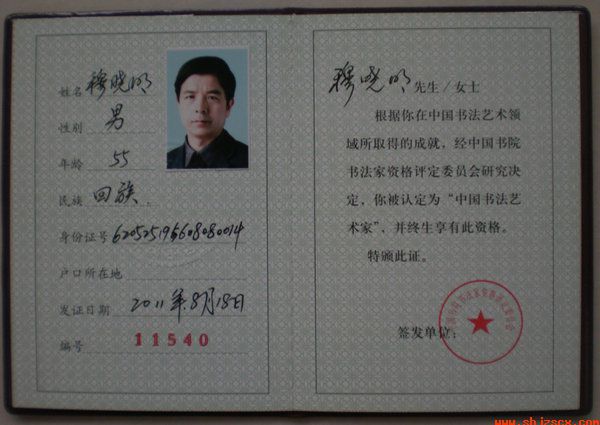 姓名 穆晓明
性别 男
年龄 55
民族 回族
身份证号 620525195608080014
户口所在地
发证日期 2011年8月18日
编号 11540
穆晓明 先生/女士
根据你在中国书法艺术领
域所取得的成就，经中国书院
书法家资格评定委员会研究决
定，你被认定为“中国书法艺
术家”，并终生享有此资格。
特颁此证。
签发单位：
www.shjzscx.com